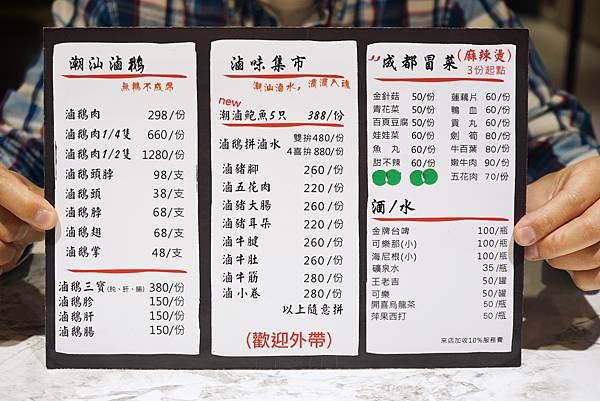 潮汕滷鵝
無鵝不成席
滷鵝肉 298/份
滷鵝肉1/4隻 660/份
滷鵝肉1/2隻 1280/份
滷鵝頭脖 98/支
滷鵝頭 38/支
滷鵝脖 68/支
滷鵝翅 68/支
滷鵝掌 48/支
滷鵝三寶(肫、肝、腸) 380/份
滷鵝胗 150/份
滷鵝肝 150/份
滷鵝腸 150/份
滷味集市
潮汕滷水，濃濃入魂
new
潮滷鮑魚5只 388/份
滷鵝拼滷水 雙拚480/份
4喜拚880/份
滷豬腳 260/份
滷五花肉 220/份
滷豬大腸 260/份
滷豬耳朵 220/份
滷牛腱 260/份
滷牛肚 260/份
滷牛筋 280/份
滷小卷 280/份
以上隨意拼
(歡迎外帶)
成都冒菜(麻辣燙)
3份起點
金針菇 50/份 蓮藕片 60/份
青花菜 50/份 鴨血 60/份
百頁豆腐 50/份 貢丸 60/份
娃娃菜 60/份 劍筍 80/份
魚丸 60/份 牛百葉 80/份
甜不辣 60/份 嫩牛肉 90/份
五花肉 70/份
酒/水
金牌台啤 100/瓶
可樂那(小) 100/瓶
海尼根(小) 100/瓶
礦泉水 35/瓶
王老吉 50/罐
可樂 50/罐
開喜烏龍茶 50/瓶
萍果西打 50/瓶
來店加收10%服務費